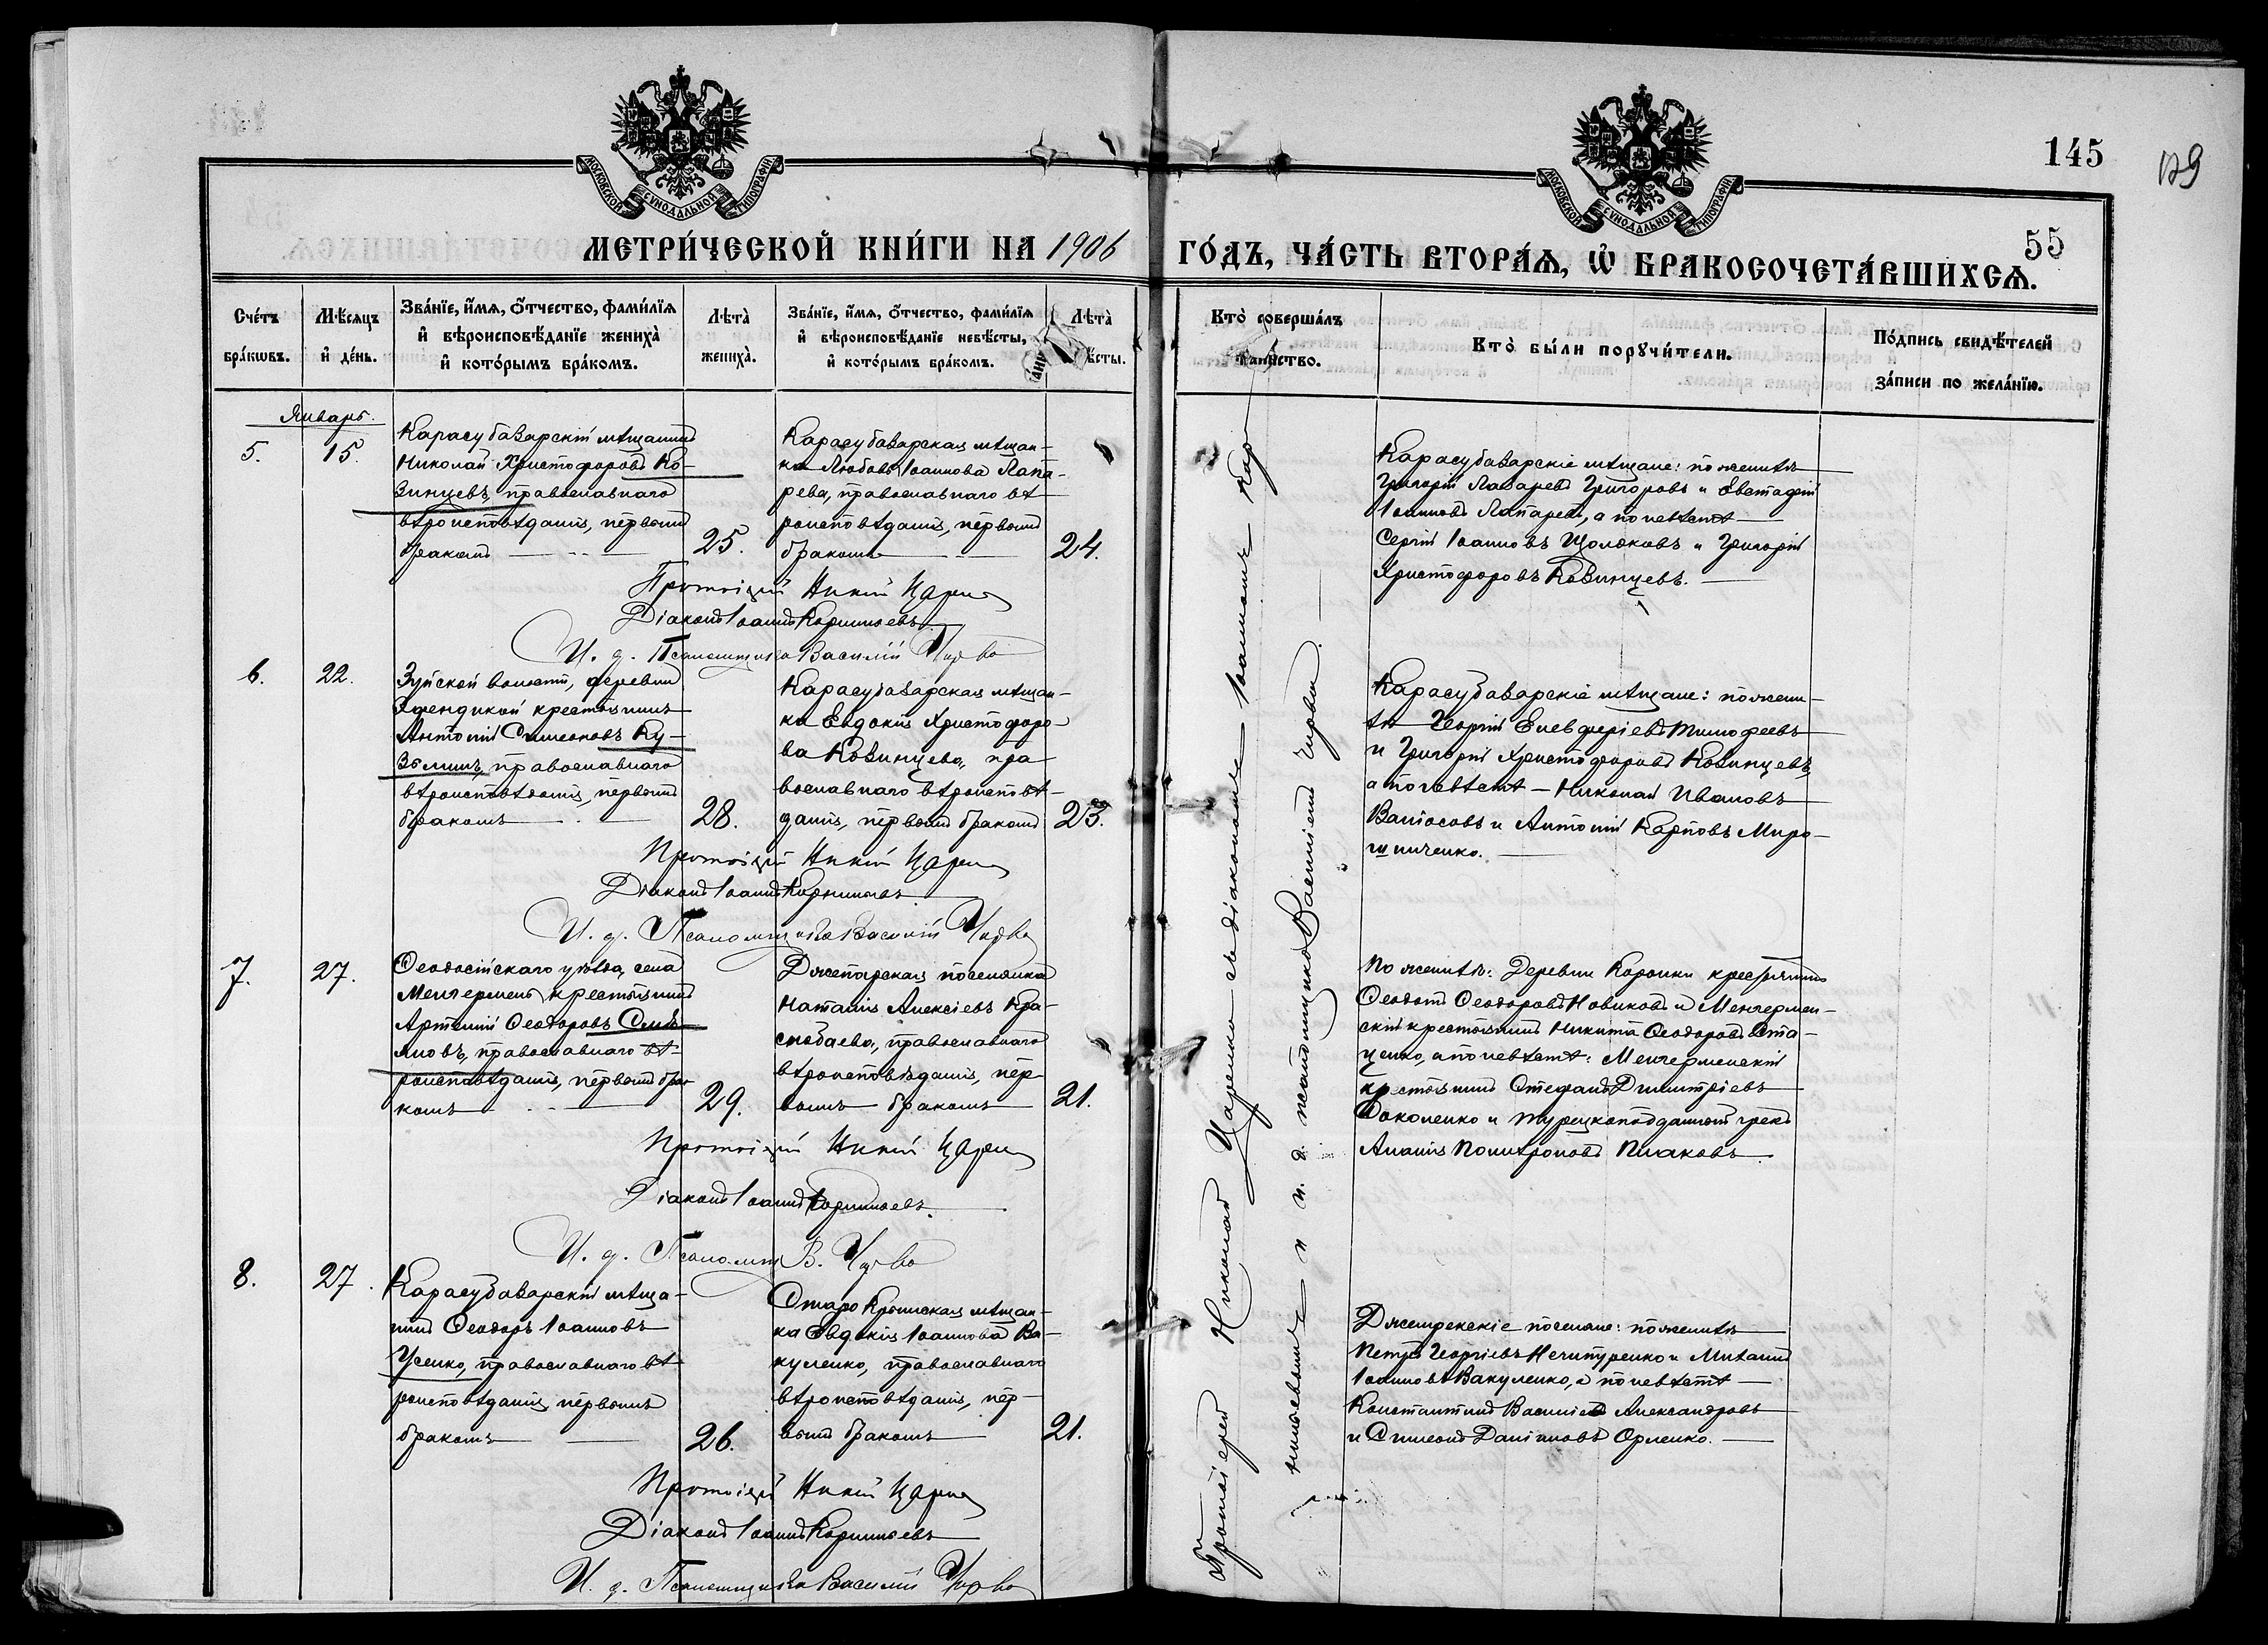 145
129
55
МОСКОВСКОЙ СѴНОДАЛЬНОЙ ТИПОГРАФІИ
МОСКОВСКОЙ СѴНОДАЛЬНОЙ ТИПОГРАФІИ
МЕТРИ́ЧЕСКОЙ КНИ́ГИ НА 1906 ГО́ДЪ, ЧА́СТЬ ВТОРА́Ѧ, Ѽ БРАКОСОЧЕТА́ВШИХСѦ.
Сче́тъ
бра́кѡвъ.
Мѣ́сяцъ
и҆ де́нь.
Зва́нїе, и҆́мѧ, ѻ҆́тчество, фами́лїѧ
и҆ вѣроисповѣ́данїе женихà
и҆ кото́рымъ бра́комъ.
Лѣтà
женихà.
Зва́нїе, и҆́мѧ, ѻ҆́тчество, фами́лїѧ
и҆ вѣроисповѣ́данїе невѣ́сты,
и҆ кото́рымъ бра́комъ.
Лѣтà
ѣ́сты.
Кто̀ соверша́лъ
таинство.
Кто̀ бы́ли порꙋчи́тели.
По́дпись свидѣ́телей
за́писи по жела́нїю.
Январь.
5.
15.
Карасубазарскій мѣщанинъ
Николай Христофоровъ Ко-
зинцевъ, православнаго
вѣроисповѣданія, первымъ
бракомъ
25.
Карасубазарская мѣщан-
ка Любовь Іоаннова Лапа-
рева, православнаго вѣ-
роисповѣданія, первымъ
бракомъ
24.
Карасубазарскіе мѣщане: по женихѣ
Григорій Лазаревъ Григоровъ и Евстафій
Іоанновъ Лапаревъ, а по невѣстѣ
Сергій Іоанновъ Щолоковъ и Григорій
Христофоровъ Козинцевъ.
Протоіерей Никол Царен
Діаконъ Іоаннъ Корниевъ
И. д. Псаломщика Василій Чирва
6.
22.
Зуйской волости, деревни
крестьянинъ
Антоній Симеоновъ Ку-
зьминъ, православнаго
вѣроисповѣданія, первымъ
бракомъ
28.
Карасубазарская мѣщан-
ка Евдокія Христофоро-
ва Козинцева, пра-
вославнаго вѣроисповѣ-
данія, первымъ бракомъ
23.
Карасубазарскіе мѣщане: по жени-
хѣ Георгій Елевферіевъ Тимофеевъ
и Григорій Христофоровъ Козинцевъ,
а по невѣстѣ — Николай Ивановъ
Валіосовъ и Антоній Карповъ Миро-
шниченко.
Протоіерей Никол Царен
Діаконъ Іоаннъ Корниевъ
И. д. Псаломщика Василій Чирва
7.
27.
Ѳеодосійскаго уѣзда, села
Менгермень крестьянинъ
Артемій Ѳеодоровъ Смѣ-
яновъ, православнаго вѣ-
роисповѣданія, первымъ бра-
комъ
29.
Джепарская поселянка
Наталія Алексіевъ Кра-
снобаева, православнаго
вѣроисповѣданія, пер-
вымъ бракомъ
21.
По женихѣ: Деревни крестьянинъ
Ѳеодотъ Ѳеодоровъ Новиковъ и Менгермен-
скій крестьянинъ Никита Ѳеодоровъ Ста-
ценко, а по невѣстѣ: Менгерменскій
крестьянинъ Стефанъ Димитріевъ
Соколенко и турецкоподданный грекъ
Ананія Политроповъ Плаковъ.
Протоіерей Никол Царен
Діаконъ Іоаннъ Корниевъ.
И. д. Псаломщ В. Чирва
8.
27.
Карасубазарскій мѣща-
нинъ Ѳеодоръ Іоанновъ
Усенко, православнаго вѣ-
роисповѣданія, первымъ
бракомъ
26.
Старо Крымская мѣщан-
ка Евдокія Іоаннова Ва-
куленко, православнаго
вѣроисповѣданія, пер-
вымъ бракомъ
21.
поселяне: по женихѣ
Петръ Георгіевъ Нечипуренко и Михаилъ
Іоанновъ Вакуленко, а по невѣстѣ
Константинъ Василіевъ Александровъ
и Симеонъ Даніиловъ Орленко.
Протоіерей Никол Царен
Діаконъ Іоаннъ Корниевъ
И. д. Псаломщика Василій Чирва
Протоіерей Николай Царенко съ діакономъ Іоанномъ Кор
ниевымъ и и. д. псаломщика Василіемъ Чирвой.